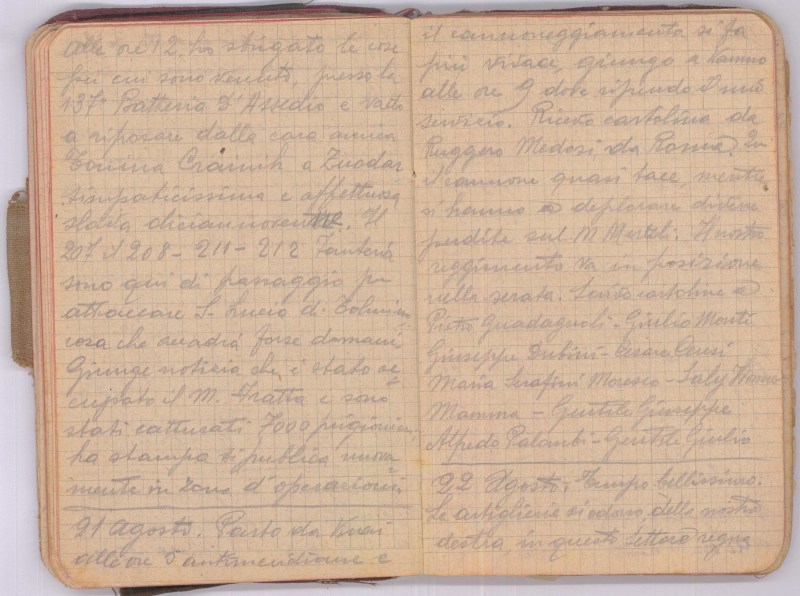 alle ore 12 ho sbrigato le cose
per cui sono venuto, presso la
137ª Batteria d'Assedio e vado
a riposare dalla cara amica
Tonina Crainik a
simpaticissima e affettuosa
slava diciannovenne. Il
207 il 208 - 211 - 212 Fanteria
sono qui di passaggio per
attaccare S. Lucia di Tolmino,
cosa che accadrà forse domani
Giunge notizia che è stato oc
cupato il M. Fratta e sono
stati catturati 7000 prigionieri,
la stampa si pubblica nuova
mente in zona d'operazioni.
21 Agosto. Parto da
alle ore 5 antimeridiane e
il cannoneggiamento si fa
più vivace, giungo a
alle ore 9 dove riprendo il mio
servizio. Ricevo cartolina da
Ruggero Medosi da Roma.
il cannone quasi tace, mentre
si hanno a deplorare diverse
perdite sul M. Il nostro
reggimento va in posizione
nella serata. Scrivo cartoline a
Pietro Guadagnoli - Giulio Monti
Giuseppe Dubini - Cesare
Maria Serafini Moresco -
Mamma - Gentile Giuseppe
Alfredo Palanti - Gentile Giulio
22 Agosto. Tempo bellissimo.
Le artiglierie si odono della nostra
destra, in questo settore regna